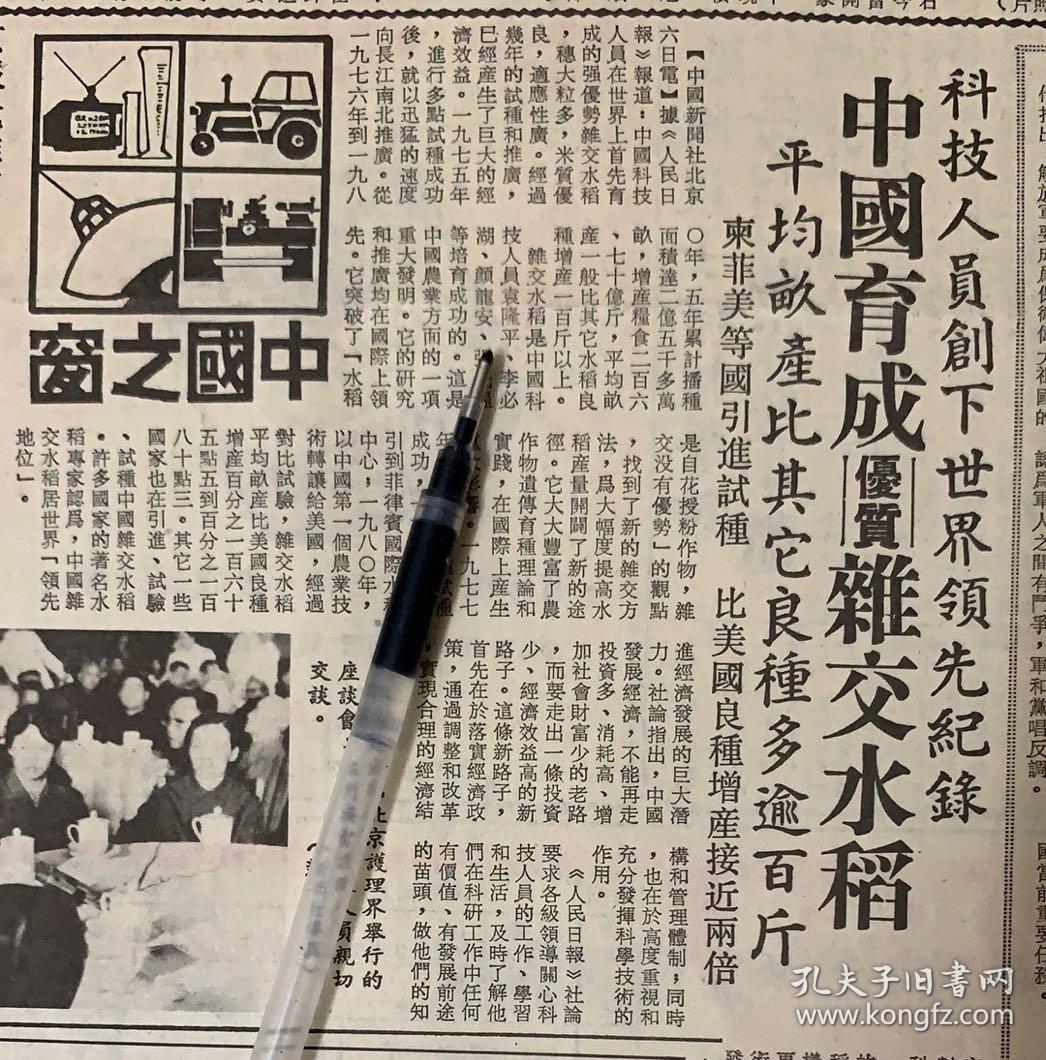 科技人員創下世界領先紀錄
中國育成優質雜交水稻
平均畝產比其它良種多逾百斤
柬菲美等國引進試種　比美國良種增産接近兩倍
【中國新聞社北京
六日電】據《人民日
報》報道：中國科技
人員在世界上首先育
成的强優勢雜交水稻
，穗大粒多，米質優
良，適應性廣。經過
幾年的試種和推廣，
已經産生了巨大的經
濟效益。一九七五年
，進行多點試種成功
後，就以迅猛的速度
向長江南北推廣。從
一九七六年到一九八
〇年，五年累計播種
面積達二億五千多萬
畝，增産糧食二百六
、七十億斤，平均畝
産一般比其它水稻良
種增産一百斤以上。
雜交水稻是中國科
技人員袁隆平、李必
湖、顏龍安、
等培育成功的。這是
中國農業方面的一項
重大發明。它的研究
和推廣均在國際上領
先。它突破了「水稻
是自花授粉作物，雜
交没有優勢」的觀點
，找到了新的雜交方
法，爲大幅度提高水
稻産量開闢了新的途
徑。它大大豐富了農
作物遺傳育種理論和
實踐，在國際上産生
響。一九七七
年 試種
成功，
引到菲律賓國際水
中心，一九八〇年，
以中國第一個農業技
術轉讓給美國，經過
對比試驗，雜交水稻
平均畝産比美國良種
增産百分之一百六十
五點五到百分之一百
八十點三。其它一些
國家也在引進、試驗
、試種中國雜交水稻
。許多國家的著名水
稻專家認爲，中國雜
交水稻居世界「領先
地位」。
中國之窗
進經濟發展的巨大潛
力。社論指出，中國
發展經濟，不能再走
投資多、消耗高、增
加社會財富少的老路
，而要走出一條投資
少、經濟效益高的新
路子。這條新路子，
首先在於落實經濟政
策，通過調整和改革
，實現合理的經濟結
構和管理體制；同時
，也在於高度重視和
充分發揮科學技術的
作用。
《人民日報》社論
要求各級領導關心科
技人員的工作、學習
和生活，及時了解他
們在科研工作中任何
有價值、有發展前途
的苗頭，做他們的知
北京護理界舉行的
座談會
人員親切
交談。
孔夫子旧書网
www.kongfz.com